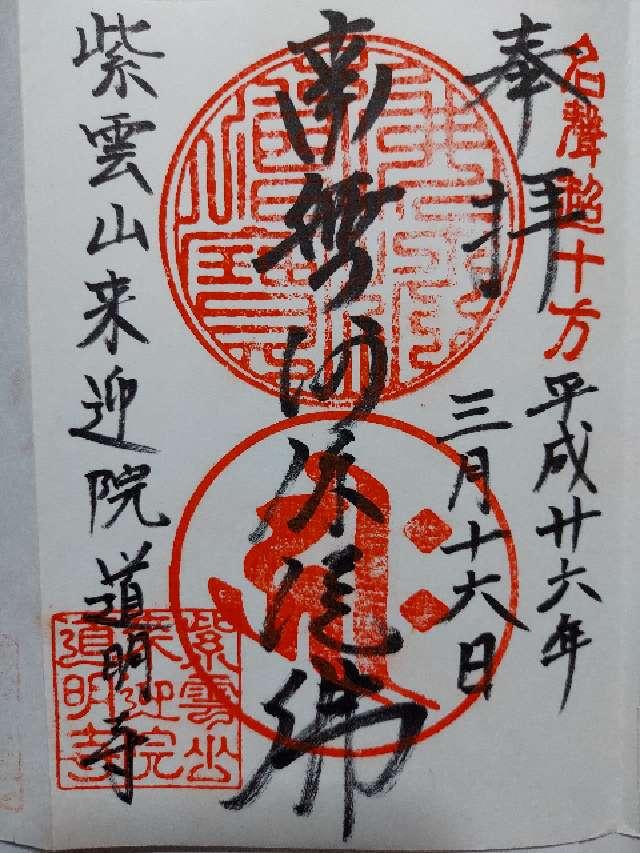 名聲超十方
奉拝
平成廿六年
三月十六日
南無阿弥陀佛
紫雲山来迎院道明寺
紫雲山
来迎院
道明寺